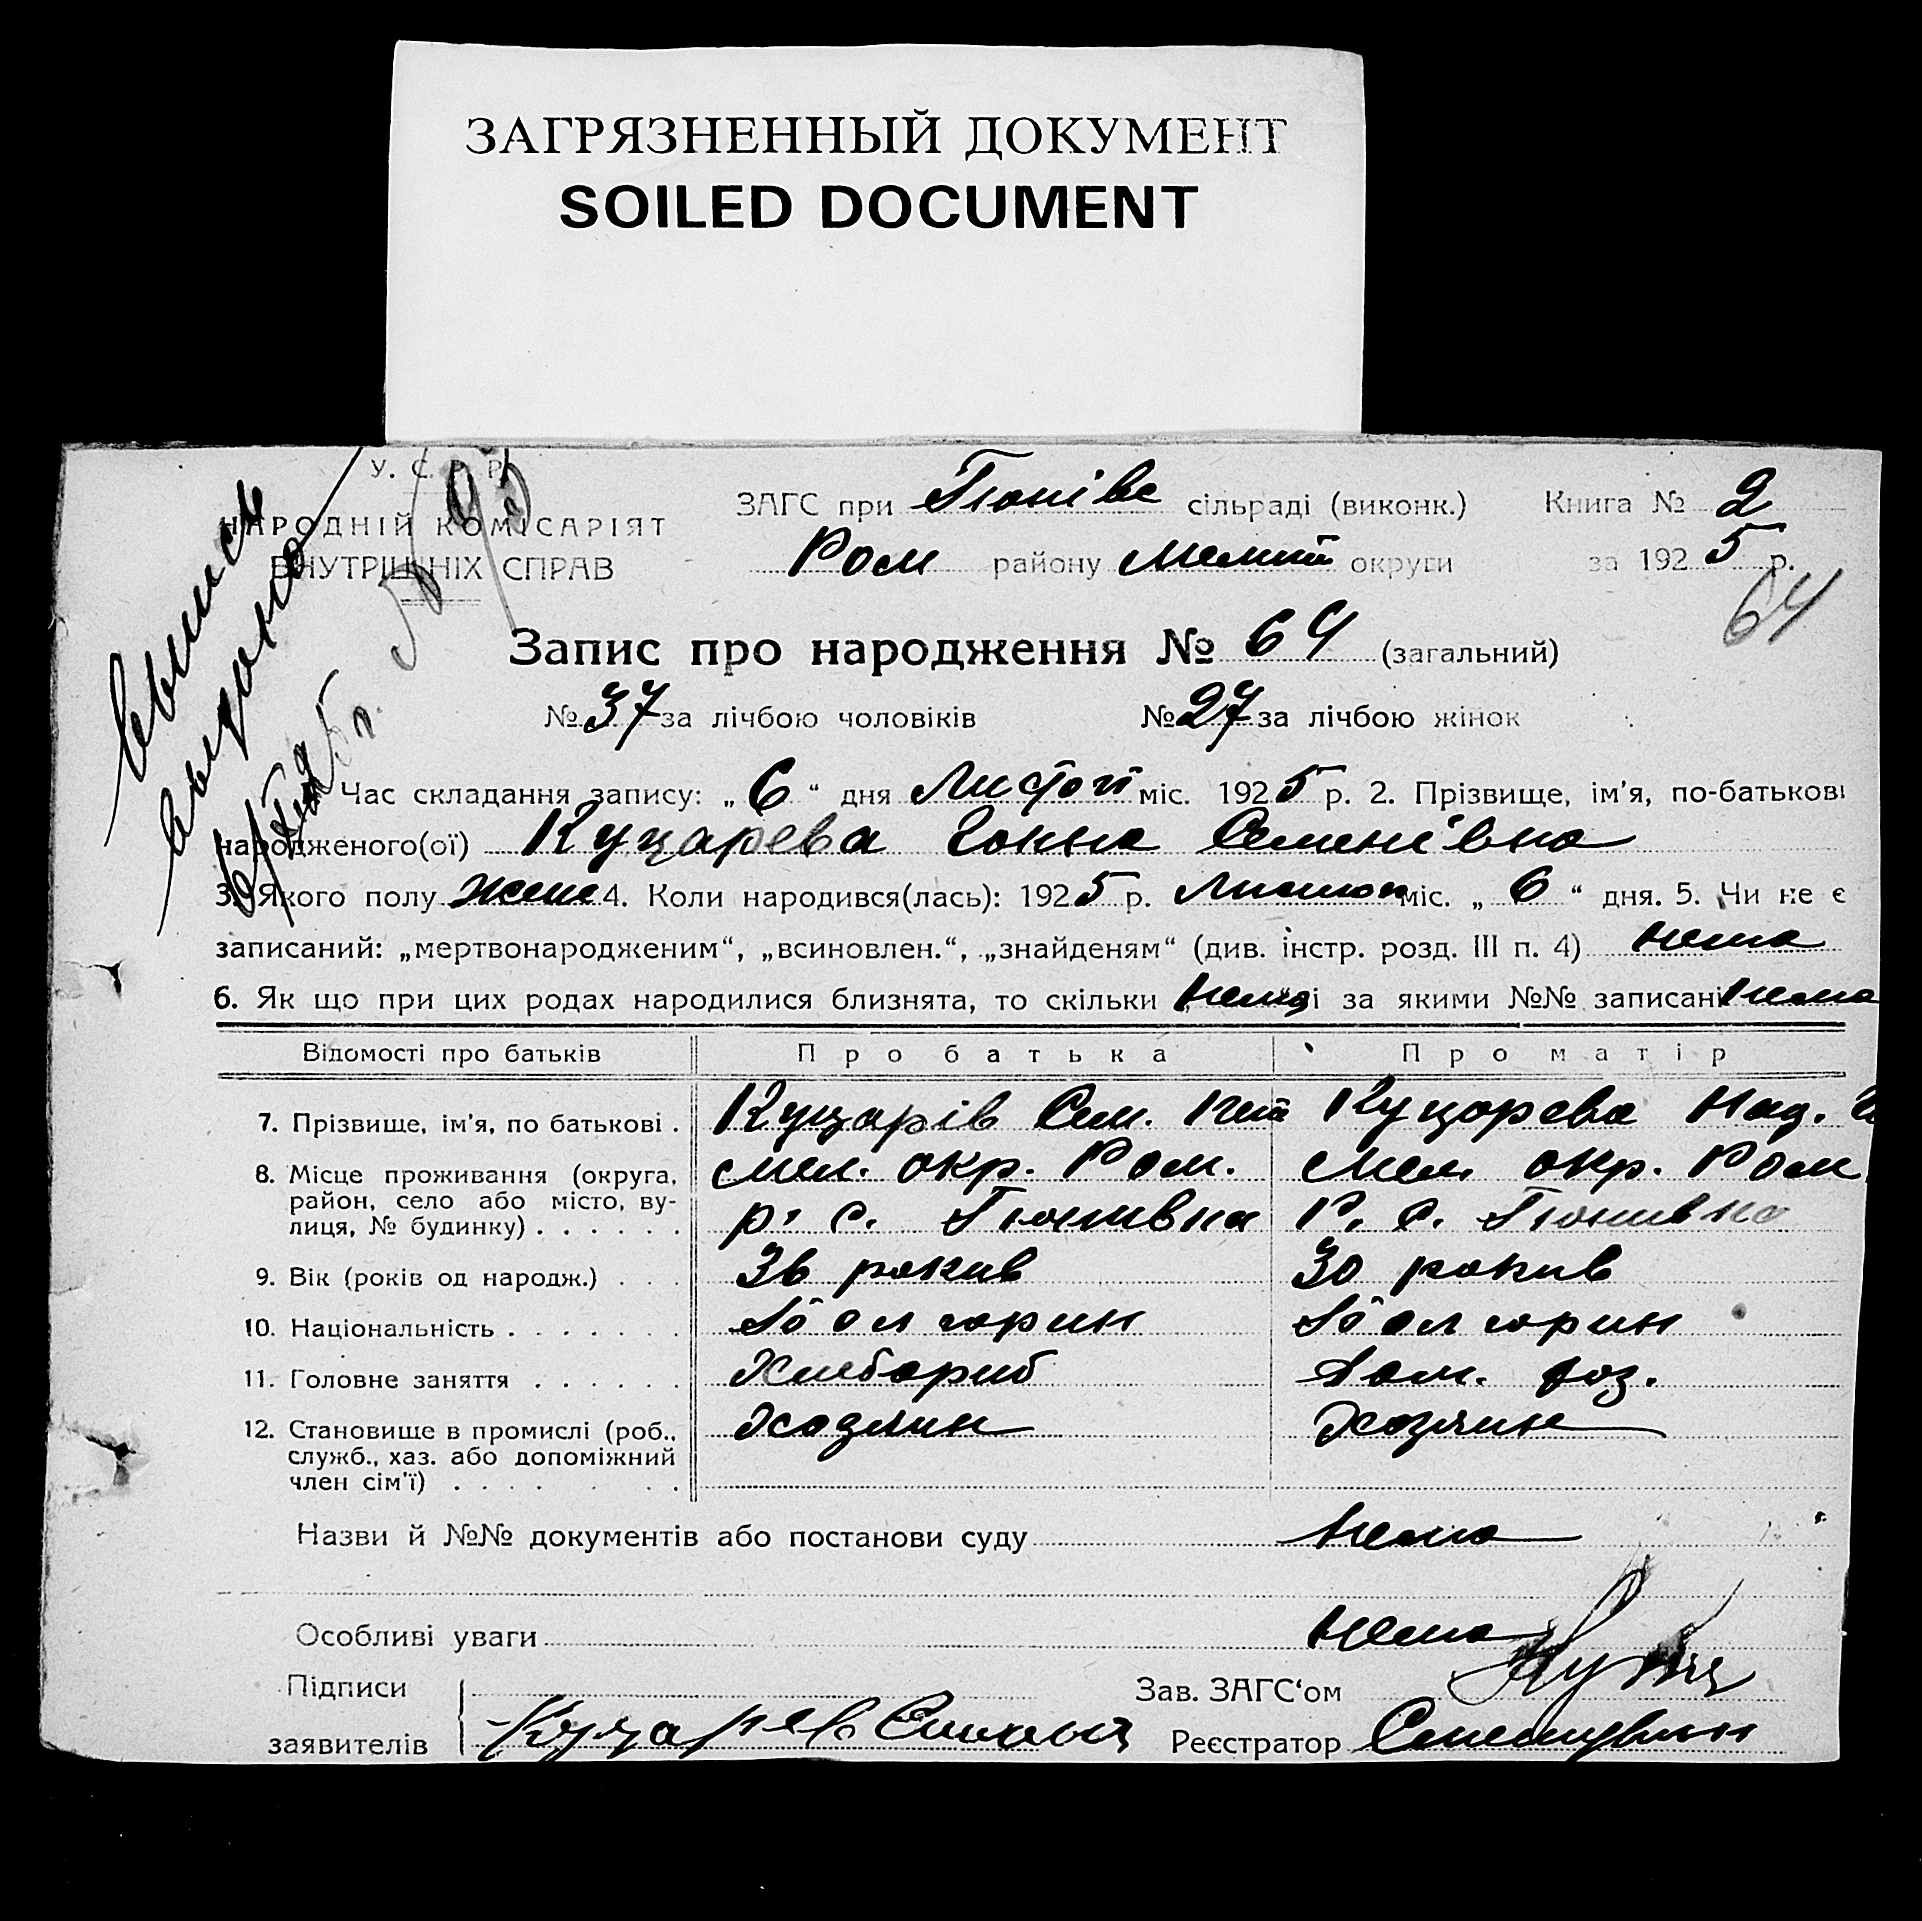 ЗАГРЯЗНЕННЫЙ ДОКУМЕНТ
SOILED DOCUMENT
У. С. Р. Р.
НАРОДНІЙ КОМІСАРІЯТ
ВНУТРІШНІХ СПРАВ
выпись
выдана
№ 93
ЗАГС при Гюнівс сільраді (виконк.) Книга № 2
Ром району Мелит округи за 1925 р.
64
Запис про народження № 64 (загальний)
№ 37 за лічбою чоловіків № 27 за лічбою жінок
Час складання запису: „6“ дня Листоп міс. 1925 р. 2. Прізвище, ім'я, по-батькові
народженого(ої) Куцарева Ганна Семенівна
3. Якого полу жен 4. Коли народився(лась): 1925 р. Листоп міс. „6“ дня. 5. Чи не є
записаний: „мертвонародженим“, „всиновлен.“, „знайденям“ (див. інстр. розд. III п. 4) нема
6. Як що при цих родах народилися близнята, то скільки нема і за якими №№ записані нема
Відомості про батьків Про батька Про матір
7. Прізвище, ім'я, по батькові . Куцарів Сем. Куцарева Над.
8. Місце проживання (округа, район, село або місто, вулиця, № будинку) . . . . . . Мел. окр. Ром. Мел. окр. Ром
р. с. Гюнивка Р. с. Гюнивка
9. Вік (років од народж.) . . . 36 рокив 30 рокив
10. Національність . . . . . . . Болгарин Болгарин
11. Головне заняття . . . . . . Хлибориб Дом. хоз.
12. Становище в промислі (роб., служб., хаз. або допоміжний член сім'ї) . . . . . . Хозяин Хозяин
Назви й №№ документів або постанови суду нема
Особливі уваги нема
Підписи Зав. ЗАГС‘ом
заявителів Куцарев Реєстратор